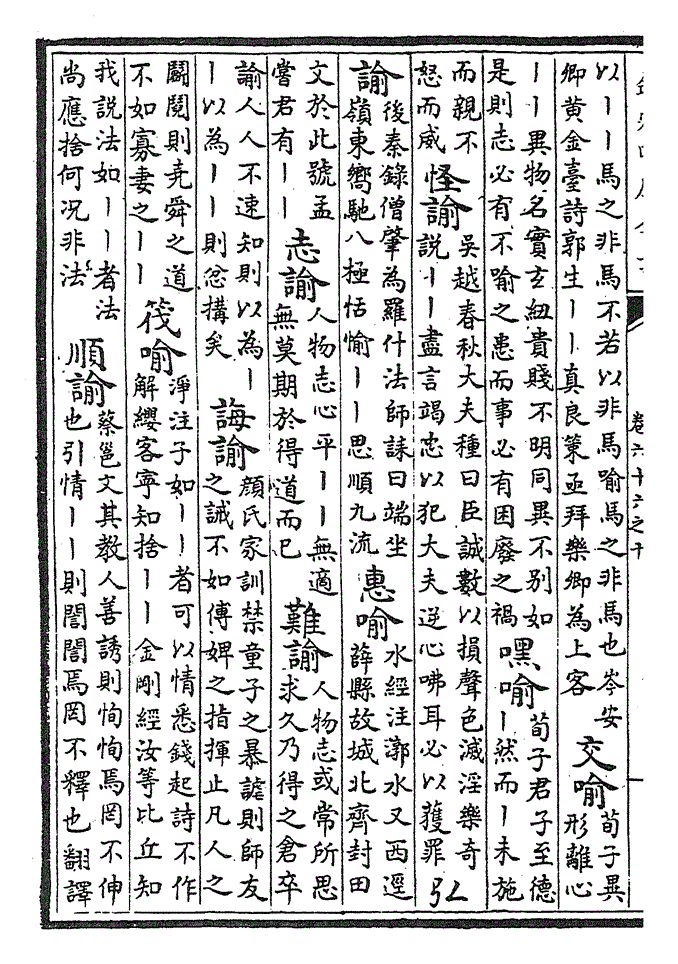 卷六十六之十
以丨丨馬之非馬不若以非馬喻馬之非馬也岑安
卿黃金臺詩郭生丨丨真良策亟拜樂卿為上客
交喻
荀子異
形離心
丨丨異物名實玄紐貴賤不明同異不别如
是則志必有不喻之患而事必有困廢之禍
嘿喻
荀子君子至德
丨然而丨未施
而親不
怒而威
怪諭
吳越春秋大夫種曰臣誠數以損聲色滅淫樂奇
說丨丨盡言竭忠以犯大夫逆心咈耳必以獲罪
弘
諭
後秦錄僧肇為羅什法師誄曰端坐
嶺東嚮馳八極恬愉丨丨思順九流
惠喻
水經注漷水又西逕
薛縣故城北齊封田
文於此號孟
嘗君有丨丨
志諭
人物志心平丨丨無適
無莫期於得道而已
難諭
人物志或常所思
求久乃得之倉卒
諭人人不速知則以為丨
丨以為丨丨則忿搆矣
誨諭
顔氏家訓禁童子之暴謔則師友
之誡不如傅婢之指揮止凡人之
鬬䦧則堯舜之道
不如寡妻之丨丨
筏喻
淨注子如丨丨者可以情悉錢起詩不作
解纓客寧知捨丨丨金剛經汝等比丘知
我說法如丨丨者法
尚應捨何况非法
順諭
蔡邕文其教人善誘則恂恂焉罔不伸
也引情丨丨則誾誾焉罔不釋也翻譯